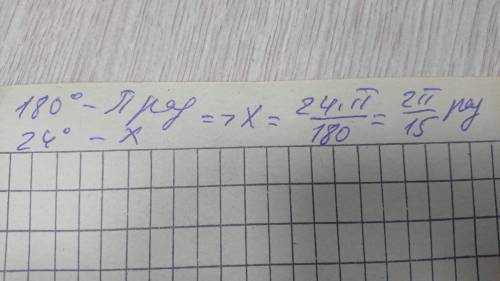 180° – π рад
24° – x
=> x = 24·π/180 = 2π/15 рад